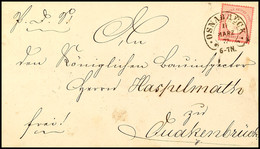 An
OSNABRUECK
MÄRZ
6-7N.
den Königlichen Bauinspector
Herrn Haspelmath
zu
frei!
Quakenbrück